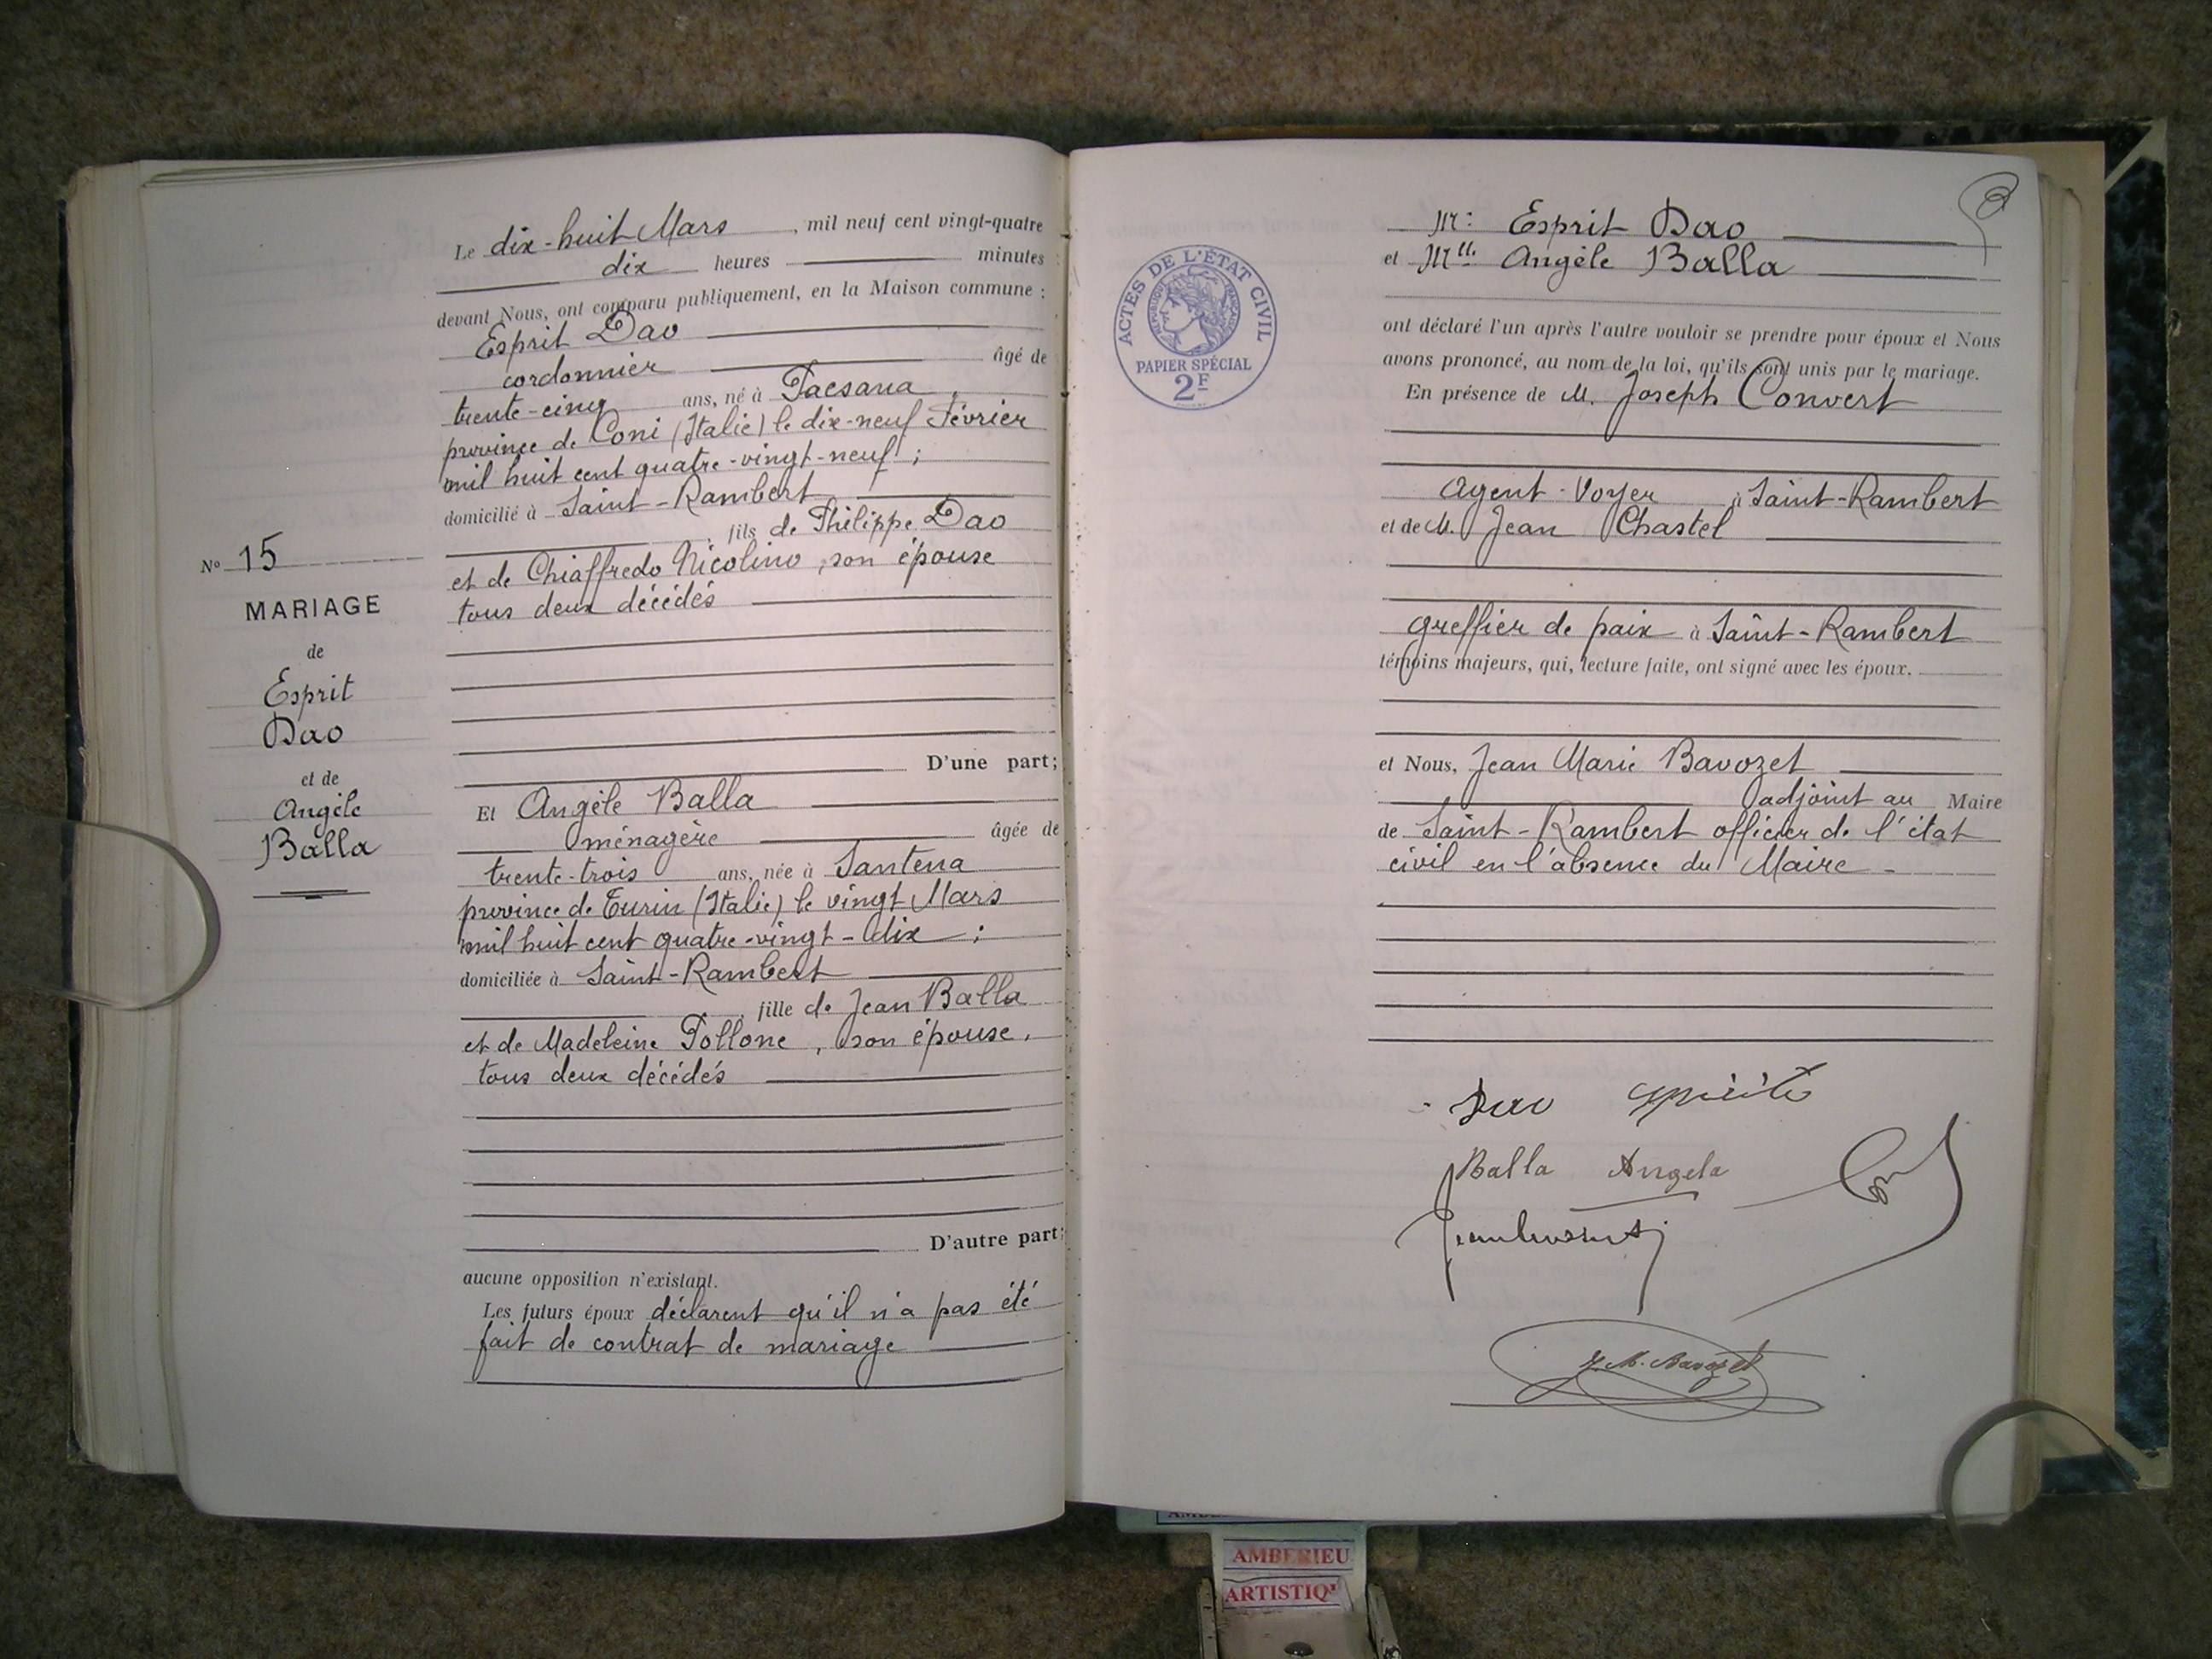 Le dix-huit Mars, mil neuf cent vingt-quatre
dix heures minutes
devant Nous, ont comparu publiquement, en la Maison commune :
Esprit Dao
cordonnier âgé de
trente-cinq ans, né à Paesana,
province de Coni (Italie) le dix-neuf Février
mil huit cent quatre-vingt-neuf ;
domicilié à Saint-Rambert
, fils de Philippe Dao
et de Chiaffredo Nicolino, son épouse
tous deux décédés
D'une part;
Et Angèle Balla
ménagère âgée de
trente-trois ans, née à Santena
province de Turin (Italie) le vingt Mars
mil huit cent quatre-vingt-dix ;
domiciliée à Saint-Rambert
, fille de Jean Balla
et de Madeleine Pollone, son épouse,
tous deux décédés
D'autre part;
aucune opposition n'existant.
Les futurs époux déclarent qu'il n'a pas été
fait de contrat de mariage
No 15
MARIAGE
de
Esprit
Dao
et de
Angèle
Balla
ACTES DE L'ÉTAT CIVIL
RÉPUBLIQUE FRANÇAISE
PAPIER SPÉCIAL
2F
Mr: Esprit Dao
et Mlle Angèle Balla
ont déclaré l'un après l'autre vouloir se prendre pour époux et Nous
avons prononcé, au nom de la loi, qu'ils sont unis par le mariage.
En présence de M. Joseph Convert
agent-Voyer à Saint-Rambert
et de M. Jean Chastel
greffier de paix à Saint-Rambert
témoins majeurs, qui, lecture faite, ont signé avec les époux.
et Nous, Jean Marie Bavozet
adjoint au Maire
de Saint-Rambert officier de l'état
civil en l'absence du Maire -
Dao Spirito
Balla Angela
J. M. Bavozet
AMBERIEU
ARTISTIQ